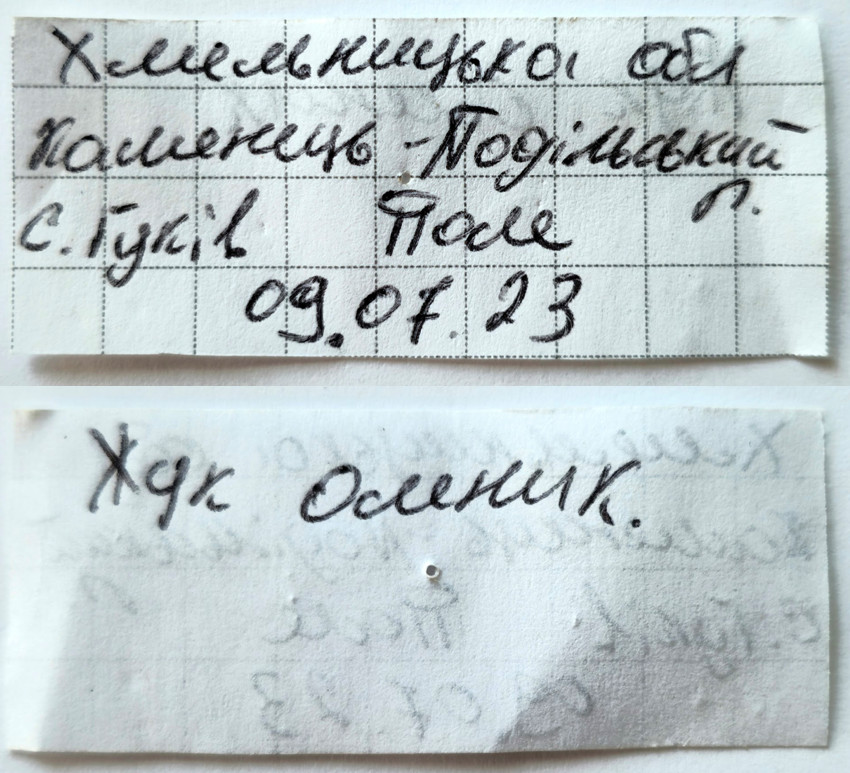 Хмельницька обл
Каменець-Подільський
р.
с. Гуків Поле
09.07.23
Жук оленик.